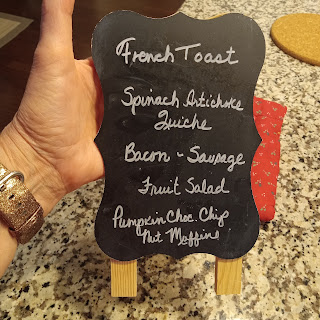 French Toast
Spinach Artichoke
Quiche
Bacon - Sausage
Fruit Salad
Pumpkin Choc. Chip
Nut Muffins